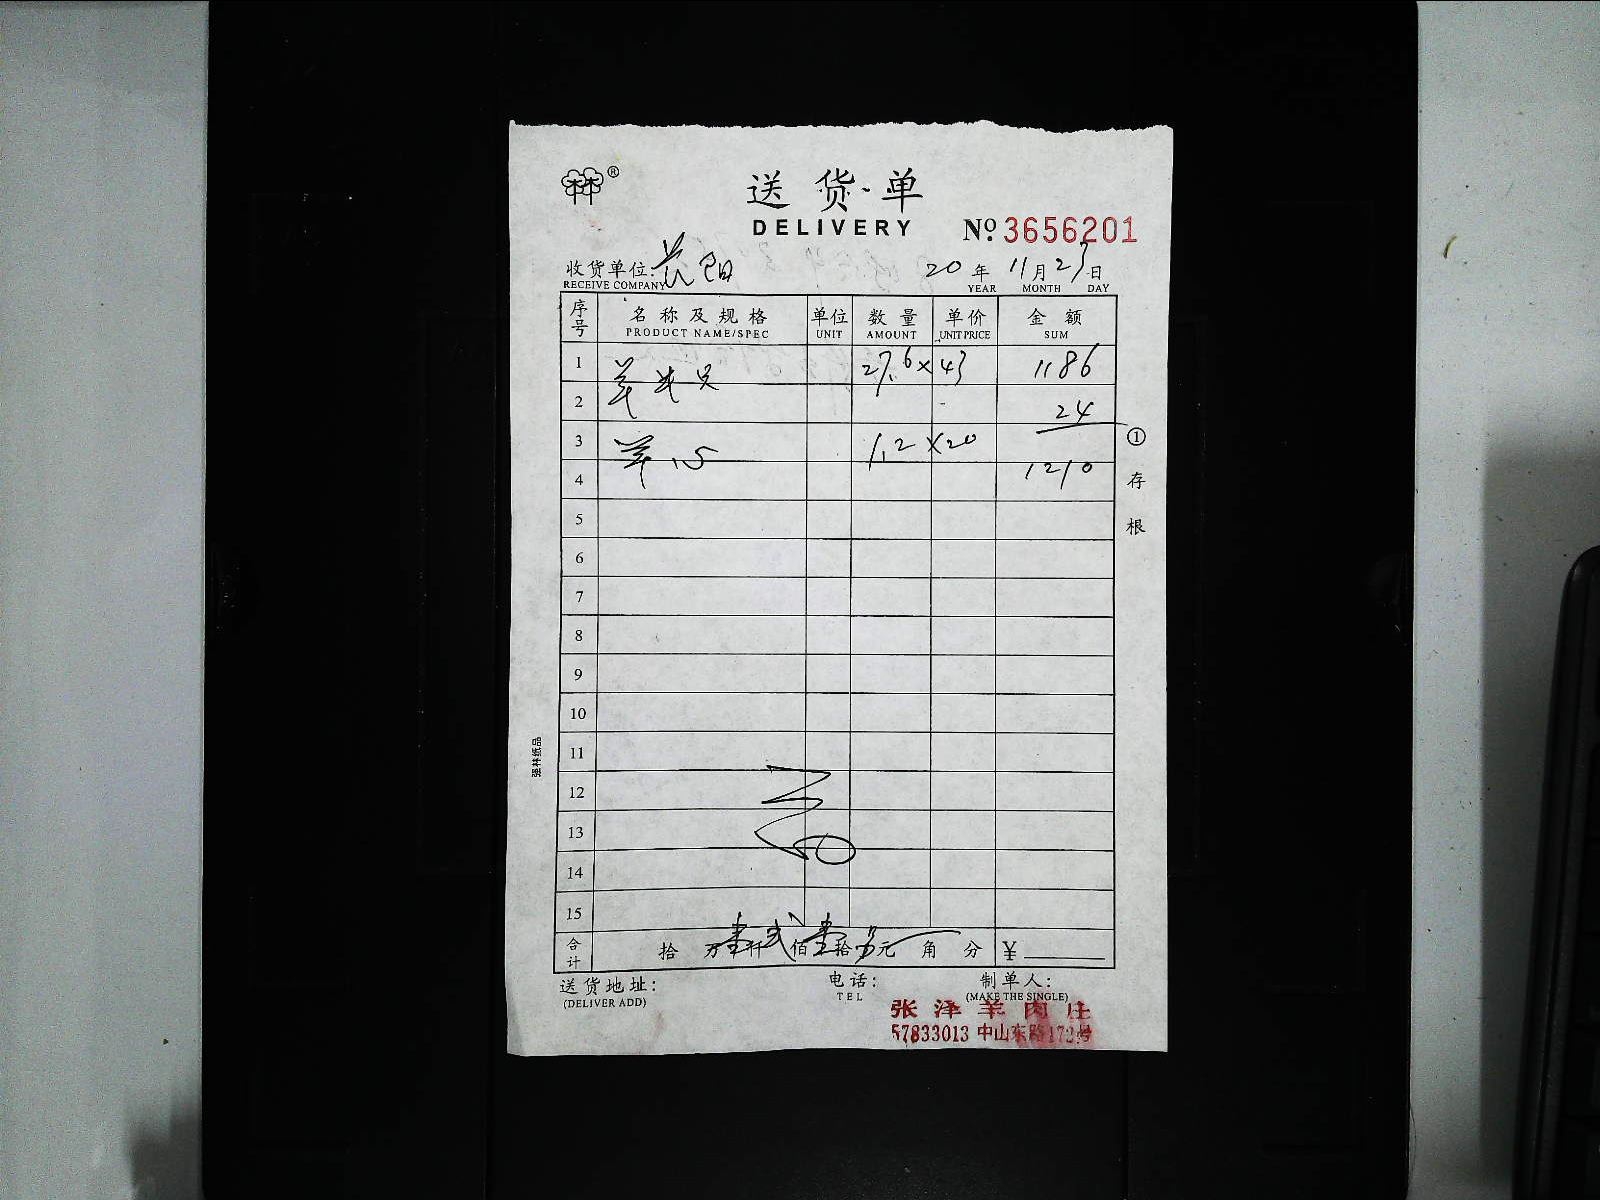 林®
送货单
DELIVERY
№ 3656201
收货单位: 阳
RECEIVE COMPANY
20 年 11 月 23 日
YEAR MONTH DAY
序号 名称及规格 单位 数量 单价 金额
PRODUCT NAME/SPEC UNIT AMOUNT UNIT PRICE SUM
1 羊 27.6 × 43 1186
2 24
3 羊心 1.2 × 20
4 1210
5
6
7
8
9
10
11
12
13
14
15
合计 拾 万 壹 仟 贰 佰 壹 拾 元 角 分 ¥
① 存根
强林纸品
送货地址: 电话: 制单人:
(DELIVER ADD) TEL (MAKE THE SINGLE)
张泽羊肉庄
57833013 中山东路172号